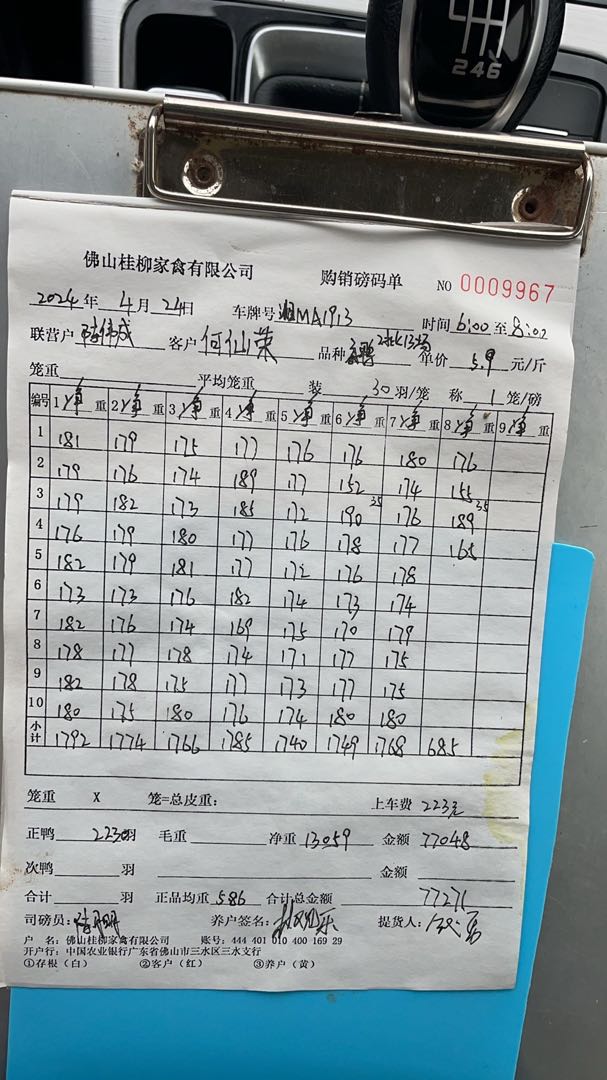 246
佛山桂柳家禽有限公司 购销磅码单 NO 0009967
2024年 4月 24日 车牌号 湘MA1913 时间 6:00 至 8:02
联营户 陆伟成 客户 何仙荣 品种 单价 5.9 元/斤
笼重 平均笼重 装 30 羽/笼 称 1 笼/磅
编号 1净重 2净重 3净重 4净重 5净重 6净重 7净重 8净重 9净重
1 181 179 175 177 176 176 180 176
2 179 176 174 189 177 152 174 155
3 179 182 173 185 172 190 35 176 189 35
4 176 179 180 177 176 178 177 165
5 182 179 181 177 172 176 178
6 173 173 176 182 174 173 174
7 182 176 174 169 175 170 179
8 178 177 178 174 171 177 175
9 182 178 175 177 173 177 175
10 180 175 180 176 174 180 180
小计 1792 1774 1766 1785 1740 1749 1768 685
笼重 X 笼=总皮重: 上车费 223元
正鸭 2230羽 毛重 净重 13059 金额 77048
次鸭 羽 金额
合计 羽 正品均重 5.86 合计总金额 77271
司磅员: 养户签名: 提货人:
户 名: 佛山桂柳家禽有限公司 账号: 444 401 010 400 169 29
开户行: 中国农业银行广东省佛山市三水区三水支行
①存根(白) ②客户(红) ③养户(黄)